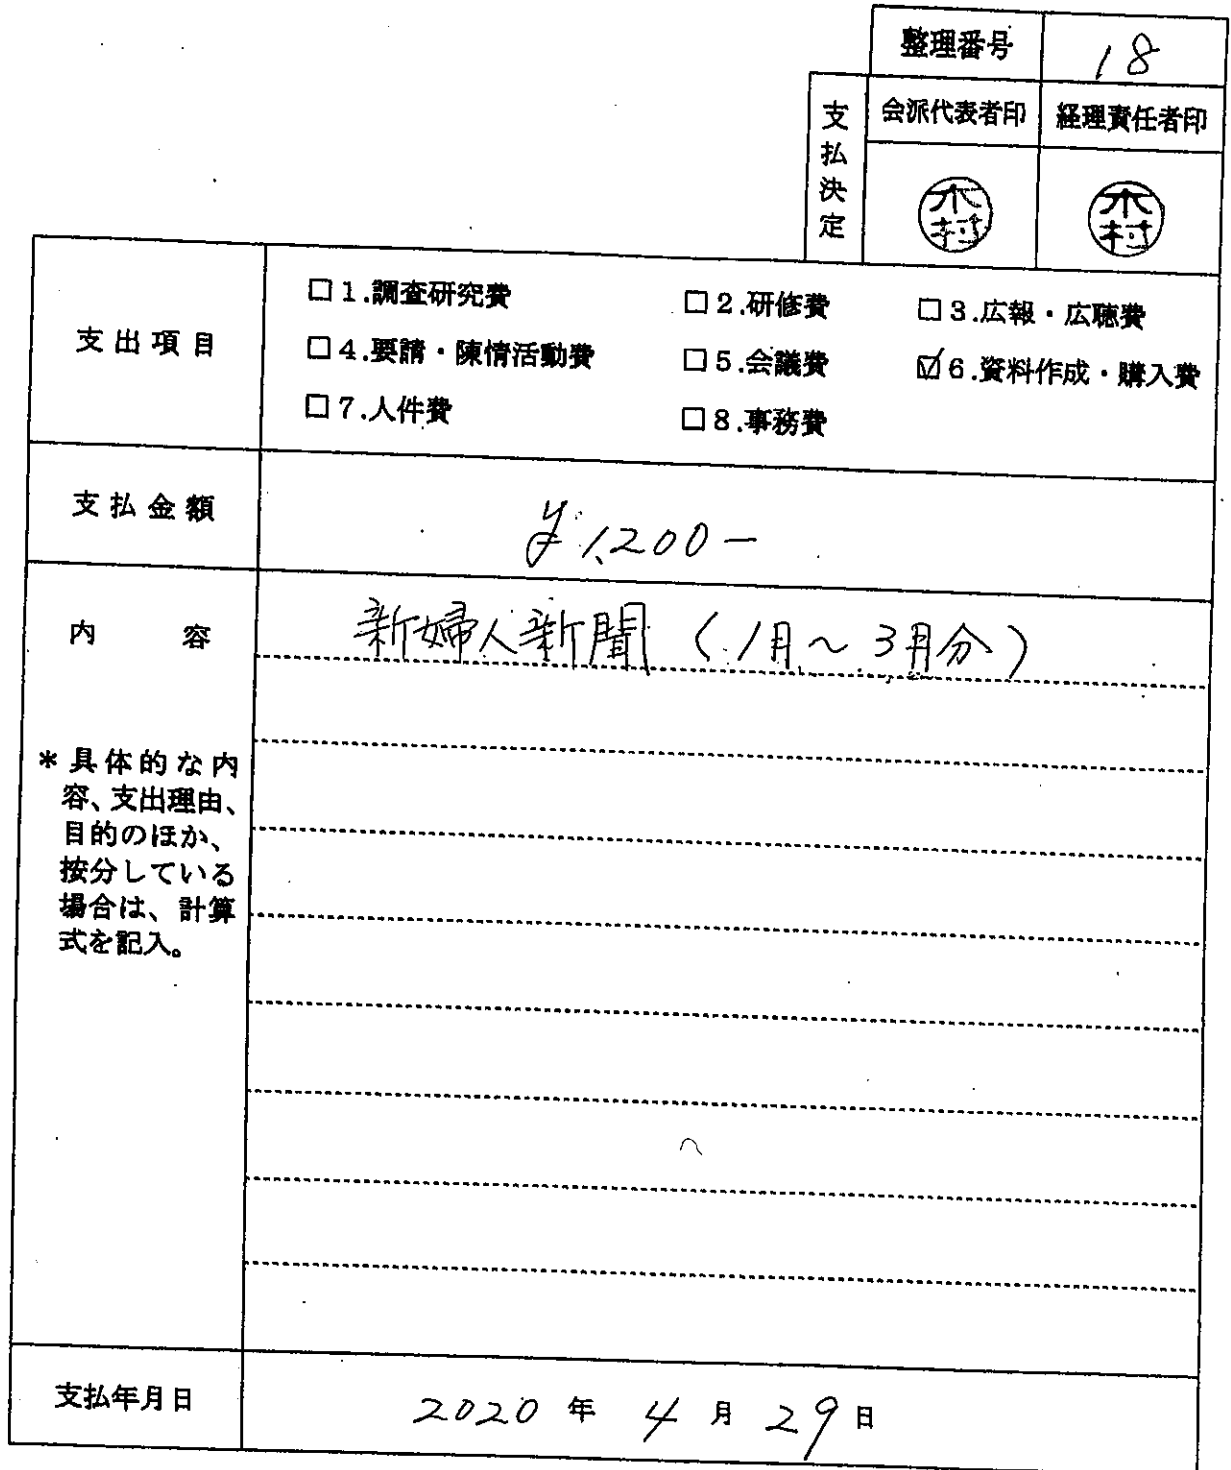 整理番号 18
支払決定
会派代表者印 経理責任者印
木村 木村
支出項目
□1.調査研究費 □2.研修費 □3.広報・広聴費
□4.要請・陳情活動費 □5.会議費 ☑6.資料作成・購入費
□7.人件費 □8.事務費
支払金額 ¥1,200-
内容 新婦人新聞(1月~3月分)
*具体的な内
容、支出理由、
目的のほか、
按分している
場合は、計算
式を記入。
支払年月日 2020年4月29日